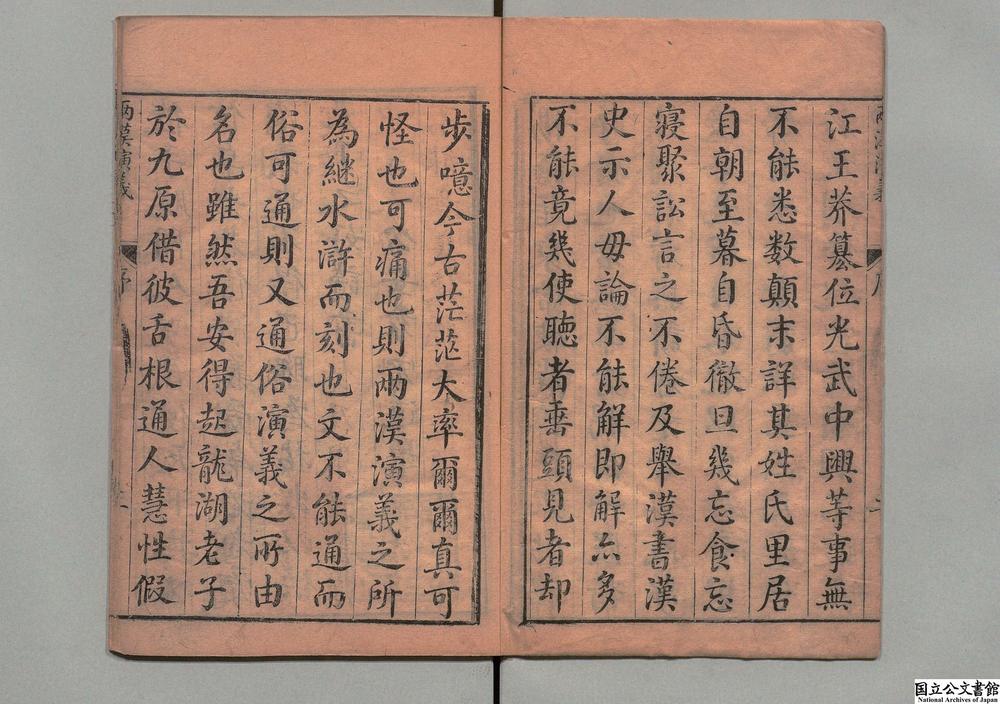 江王莽簒位光武中興等事無
不能悉数顛末詳其姓氏里居
自朝至暮自昏徹旦幾忘食忘
寝聚訟言之不倦及舉漢書漢
史示人毋論不能解即解亦多
不能竟幾使聴者垂頭見者却
步噫今古茫茫大率爾爾真可
怪也可痛也則兩漢演義之所
為継水滸而刻也文不能通而
俗可通則又通俗演義之所由
名也雖然吾安得起龍湖老子
於九原借彼舌根通人慧性假
兩漢演義
序
国立公文書館
National Archives of Japan